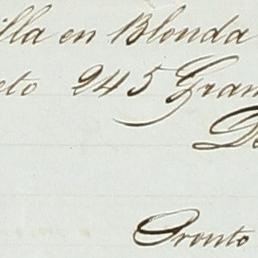 illa en Blonda
eto 245 Gram
De
Pronto